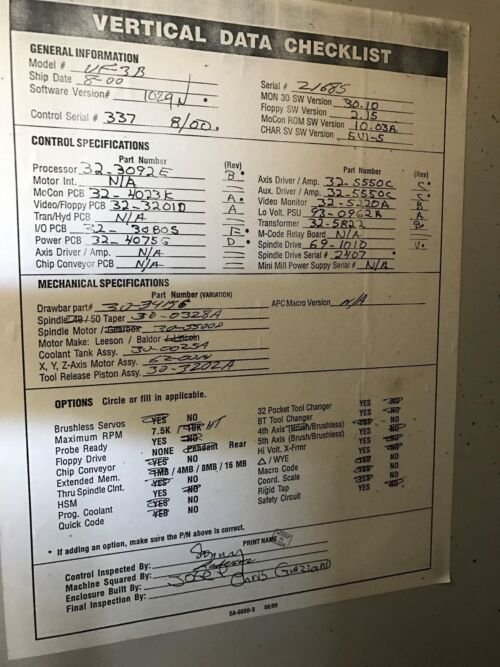 VERTICAL DATA CHECKLIST
GENERAL INFORMATION
Model # VF3B
Ship Date 8-00
Software Version# 1029N
Control Serial # 337 8/00
Serial # 21685
MON 30 SW Version 30.10
Floppy SW Version 2.15
MoCon ROM SW Version 10.03A
CHAR SV SW Version
CONTROL SPECIFICATIONS
Part Number (Rev)
Processor 32-3092E B
Motor Int. N/A
McCon PCB 32-4023K A
Video/Floppy PCB 32-3201D A
Tran/Hyd PCB N/A
I/O PCB 32-3080S E
Power PCB 32-4075G D
Axis Driver / Amp. N/A
Chip Conveyor PCB N/A
Part Number (Rev)
Axis Driver / Amp. 32-5550C C
Aux. Driver / Amp. 32-5550C C
Video Monitor 32-5220A B
Lo Volt. PSU 93-0962A A
Transformer 32-5822 B
M-Code Relay Board N/A
Spindle Drive 69-1010 V
Spindle Drive Serial # 2407
Mini Mill Power Suppy Serial # N/A
MECHANICAL SPECIFICATIONS
Part Number (VARIATION)
Drawbar part# APC Macro Version N/A
Spindle 40 / 50 Taper 30-0328A
Spindle Motor / Gearbox
Motor Make: Leeson / Baldor / Lincoln
Coolant Tank Assy. 30-0025A
X, Y, Z-Axis Motor Assy.
Tool Release Piston Assy. 30-3202A
OPTIONS Circle or fill in applicable.
Brushless Servos YES NO
Maximum RPM 7.5K
Probe Ready YES NO
Floppy Drive NONE Pendant Rear
Chip Conveyor YES NO
Extended Mem. 1MB / 4MB / 8MB / 16 MB
Thru Spindle Clnt. YES NO
HSM YES NO
Prog. Coolant YES NO
Quick Code YES NO
32 Pocket Tool Changer YES NO
BT Tool Changer YES NO
4th Axis (Brush/Brushless) YES NO
5th Axis (Brush/Brushless) YES NO
Hi Volt. X-Frmr YES NO
△ / WYE
Macro Code YES NO
Coord. Scale YES NO
Rigid Tap YES NO
Safety Circuit YES NO
* If adding an option, make sure the P/N above is correct.
PRINT NAME
Control Inspected By: Sonny
Machine Squared By:
Enclosure Built By: JOSE
Final Inspection By: Chris
EA-0050-S 09/99